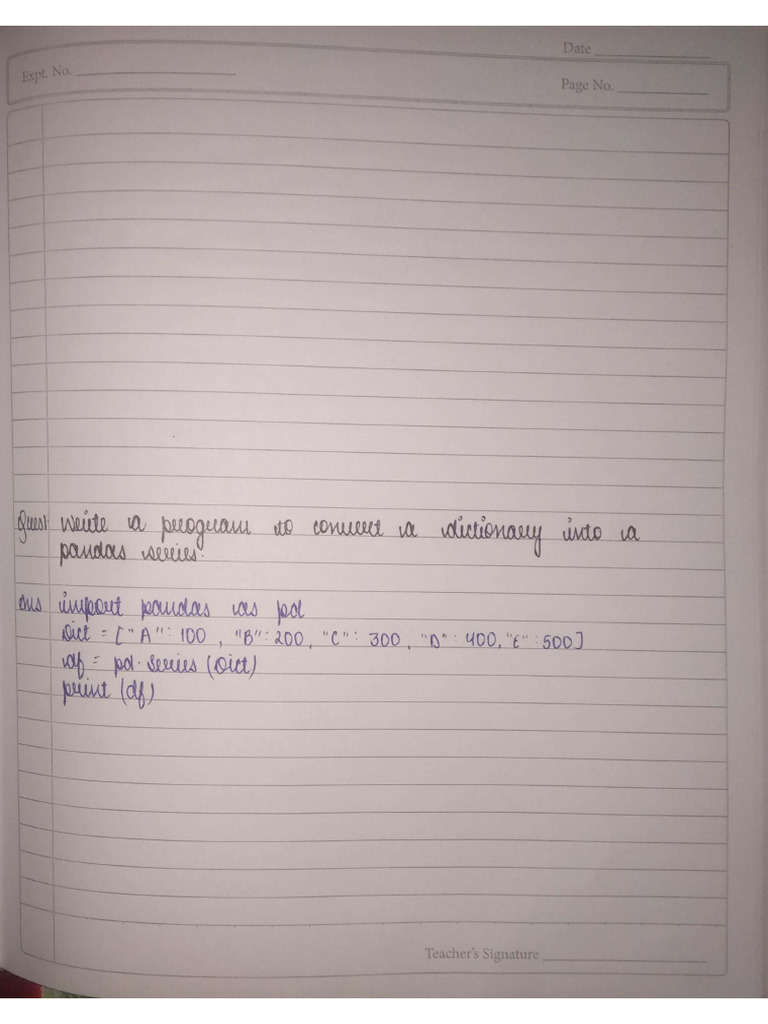 Date
Expt. No.
Page No.
Ques1 Write a program to convert a dictionary into a
pandas series.
Ans import pandas as pd
Dict = ["A": 100, "B": 200, "C": 300, "D": 400, "E": 500]
df = pd. series (Dict)
print (df)
Teacher's Signature